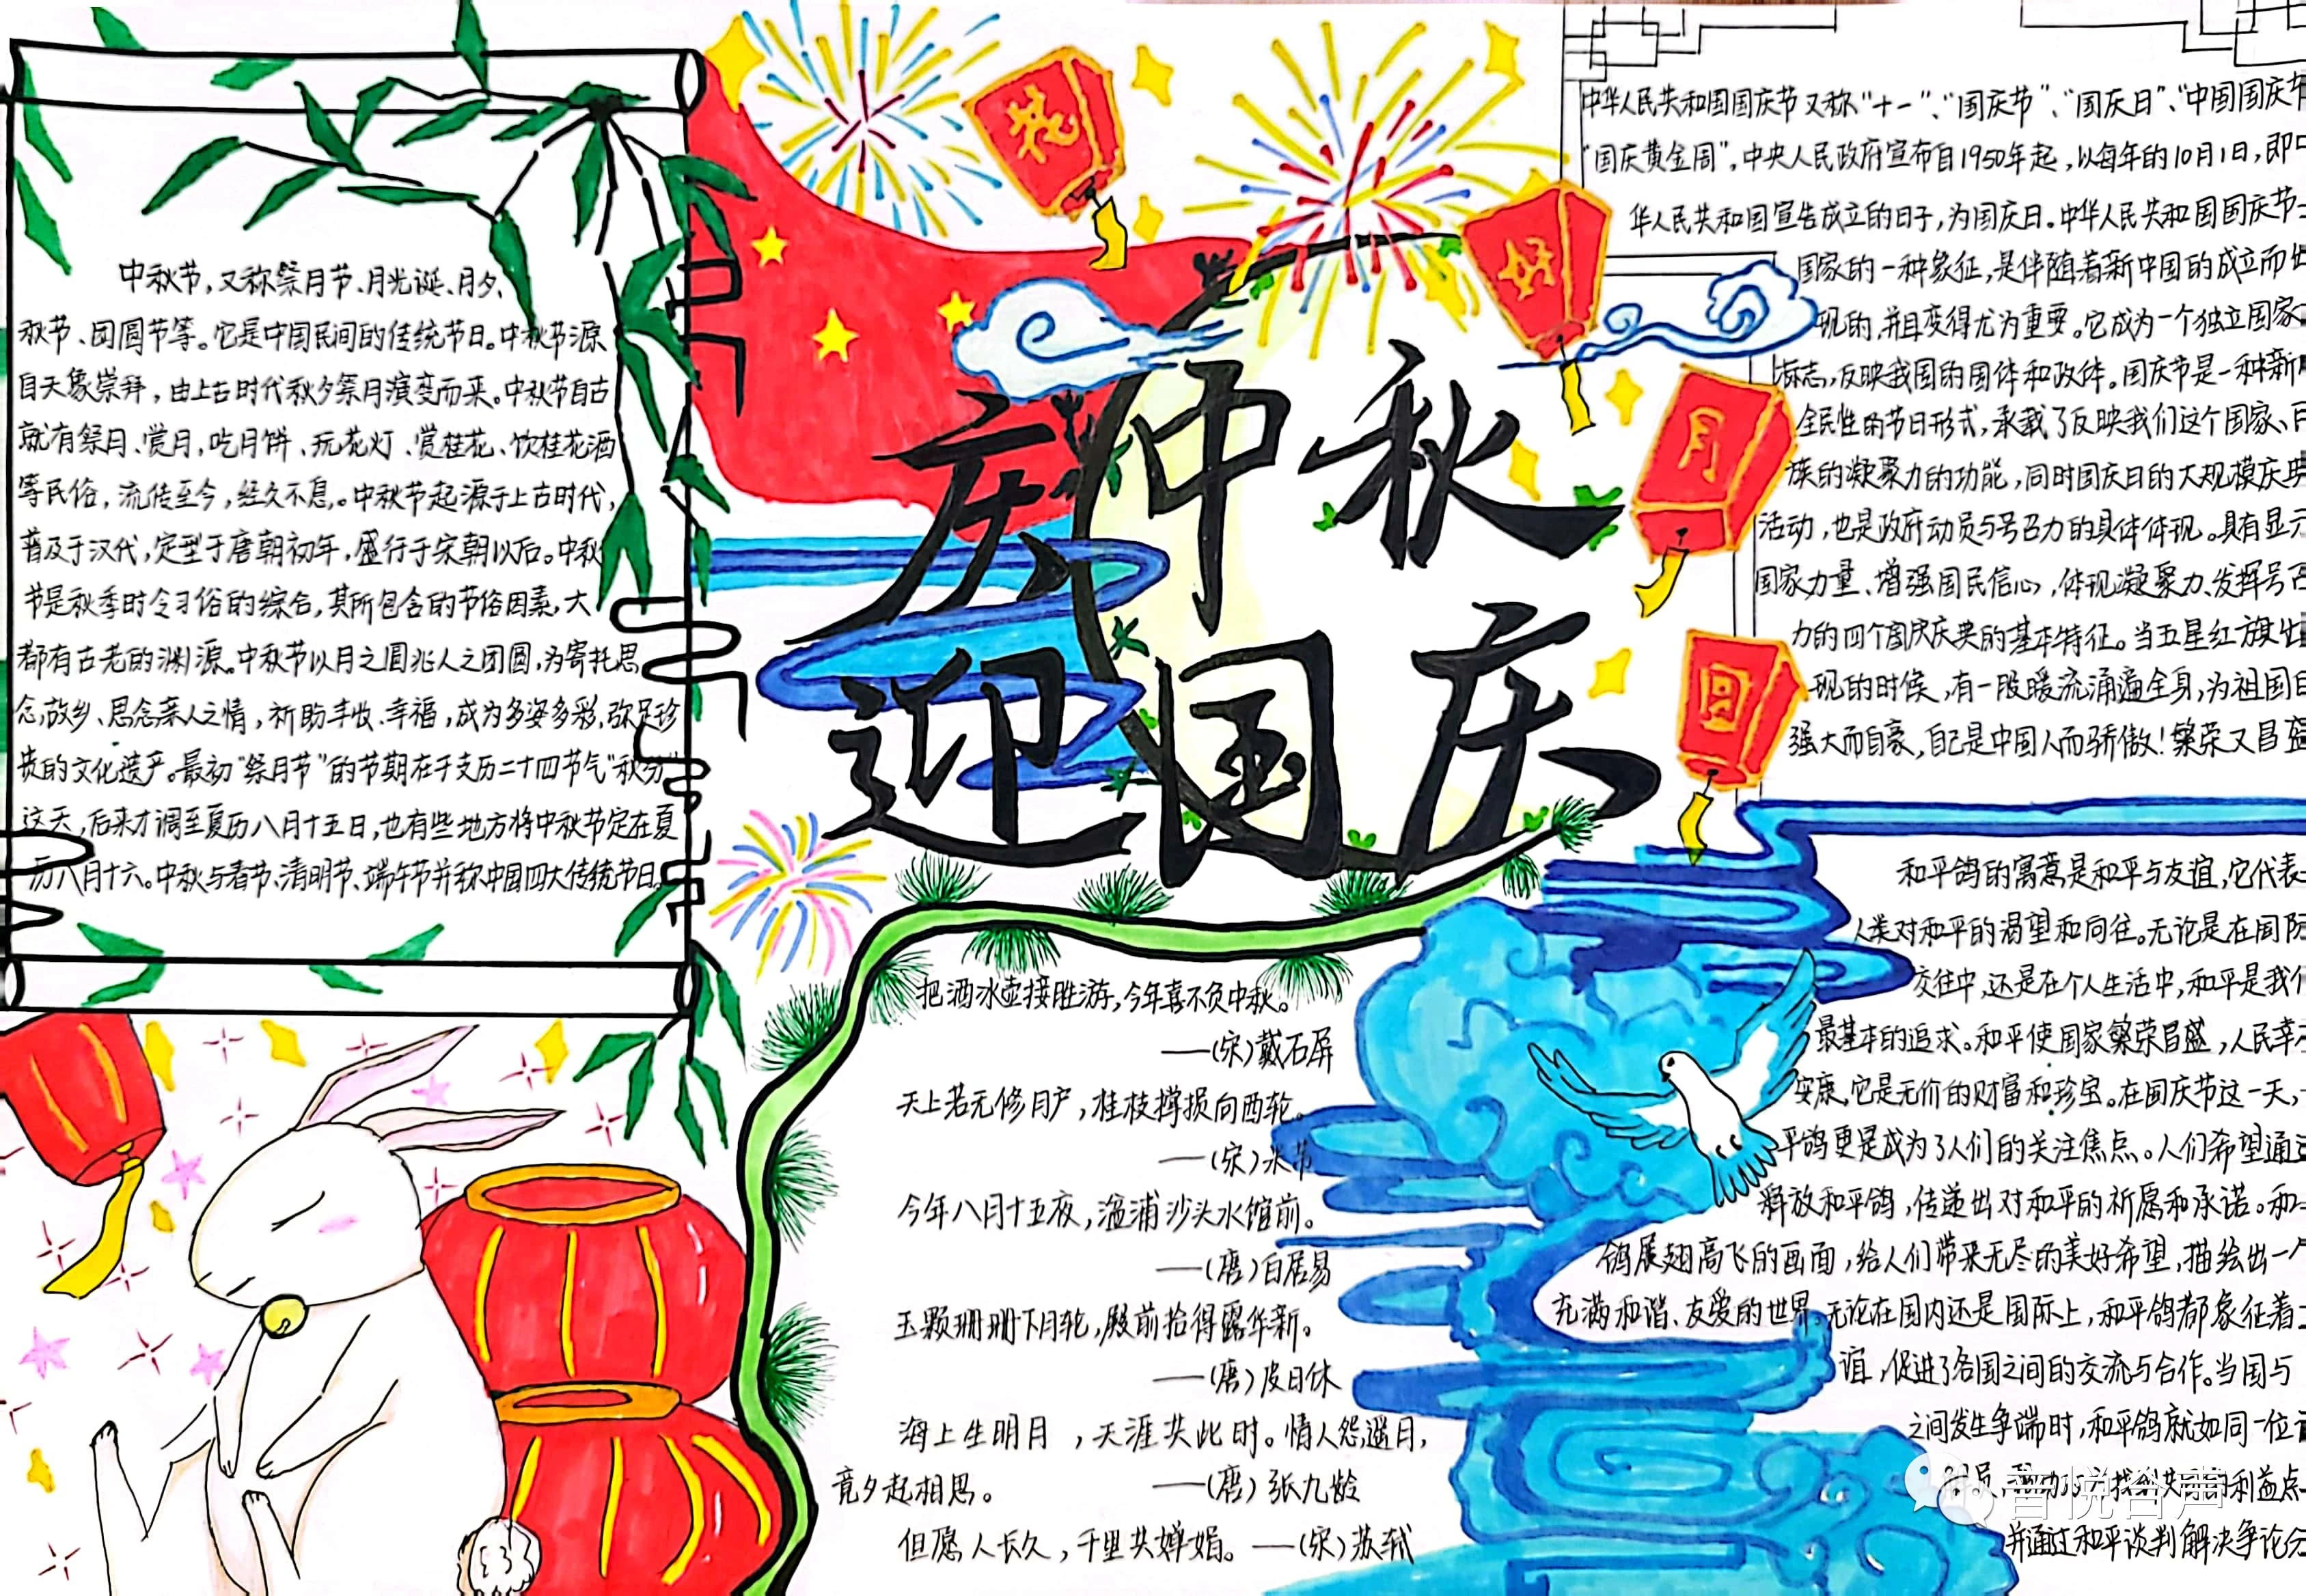 庆中秋
迎国庆
花
好
月
圆
中秋节,又称祭月节、月光诞、月夕、
秋节、团圆节等。它是中国民间的传统节日。中秋节源
自天象崇拜,由上古时代秋夕祭月演变而来。中秋节自古
就有祭月、赏月、吃月饼、玩花灯、赏桂花、饮桂花酒
等民俗,流传至今,经久不息。中秋节起源于上古时代,
普及于汉代,定型于唐朝初年,盛行于宋朝以后。中秋
节是秋季时令习俗的综合,其所包含的节俗因素,大
都有古老的渊源。中秋节以月之圆兆人之团圆,为寄托思
念故乡、思念亲人之情,祈盼丰收、幸福,成为多姿多彩,弥足珍
贵的文化遗产。最初“祭月节”的节期在干支历二十四节气“秋分”
这天,后来才调至夏历八月十五日,也有些地方将中秋节定在夏
历八月十六。中秋与春节、清明节、端午节并称中国四大传统节日。
把酒冰壶接胜游,今年喜不负中秋。
——(宋)戴石屏
天上若无修月户,桂枝撑损向西轮。
——(宋)米芾
今年八月十五夜,湓浦沙头水馆前。
——(唐)白居易
玉颗珊珊下月轮,殿前拾得露华新。
——(唐)皮日休
海上生明月,天涯共此时。情人怨遥月,
竟夕起相思。——(唐)张九龄
但愿人长久,千里共婵娟。——(宋)苏轼
中华人民共和国国庆节又称“十一”、“国庆节”、“国庆日”、“中国国庆节
“国庆黄金周”。中央人民政府宣布自1950年起,以每年的10月1日,即中
华人民共和国宣告成立的日子,为国庆日。中华人民共和国国庆节
国家的一种象征,是伴随着新中国的成立而出
现的,并且变得尤为重要。它成为一个独立国家
标志,反映我国的国体和政体。国庆节是一种新
全民性的节日形式,承载了反映我们这个国家、民
族的凝聚力的功能,同时国庆日的大规模庆典
活动,也是政府动员与号召力的具体体现。具有显示
国家力量、增强国民信心,体现凝聚力、发挥号召
力的四个国庆庆典的基本特征。当五星红旗出
现的时候,有一股暖流涌遍全身,为祖国日
强大而自豪,自己是中国人而骄傲!繁荣又昌盛
和平鸽的寓意是和平与友谊,它代表
人类对和平的渴望和向往。无论是在国际
交往中,还是在个人生活中,和平是我们
最基本的追求。和平使国家繁荣昌盛,人民幸
安康。它是无价的财富和珍宝。在国庆节这一天,
平鸽更是成为了人们的关注焦点。人们希望通过
释放和平鸽,传递出对和平的祈愿和承诺。和
鸽展翅高飞的画面,给人们带来无尽的美好希望,描绘出一个
充满和谐、友爱的世界。无论在国内还是国际上,和平鸽都象征着
谊,促进了各国之间的交流与合作。当国与
之间发生争端时,和平鸽就如同一位
利益点
并通过和平谈判解决争论
音悦台声